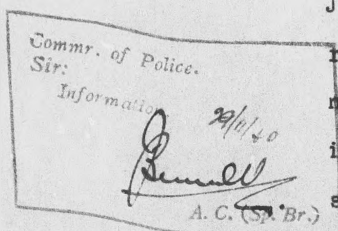 Commr. of Police.
Sir:
Information
29/11/40
A. C. (Sp. Br.)
J
n
i
s